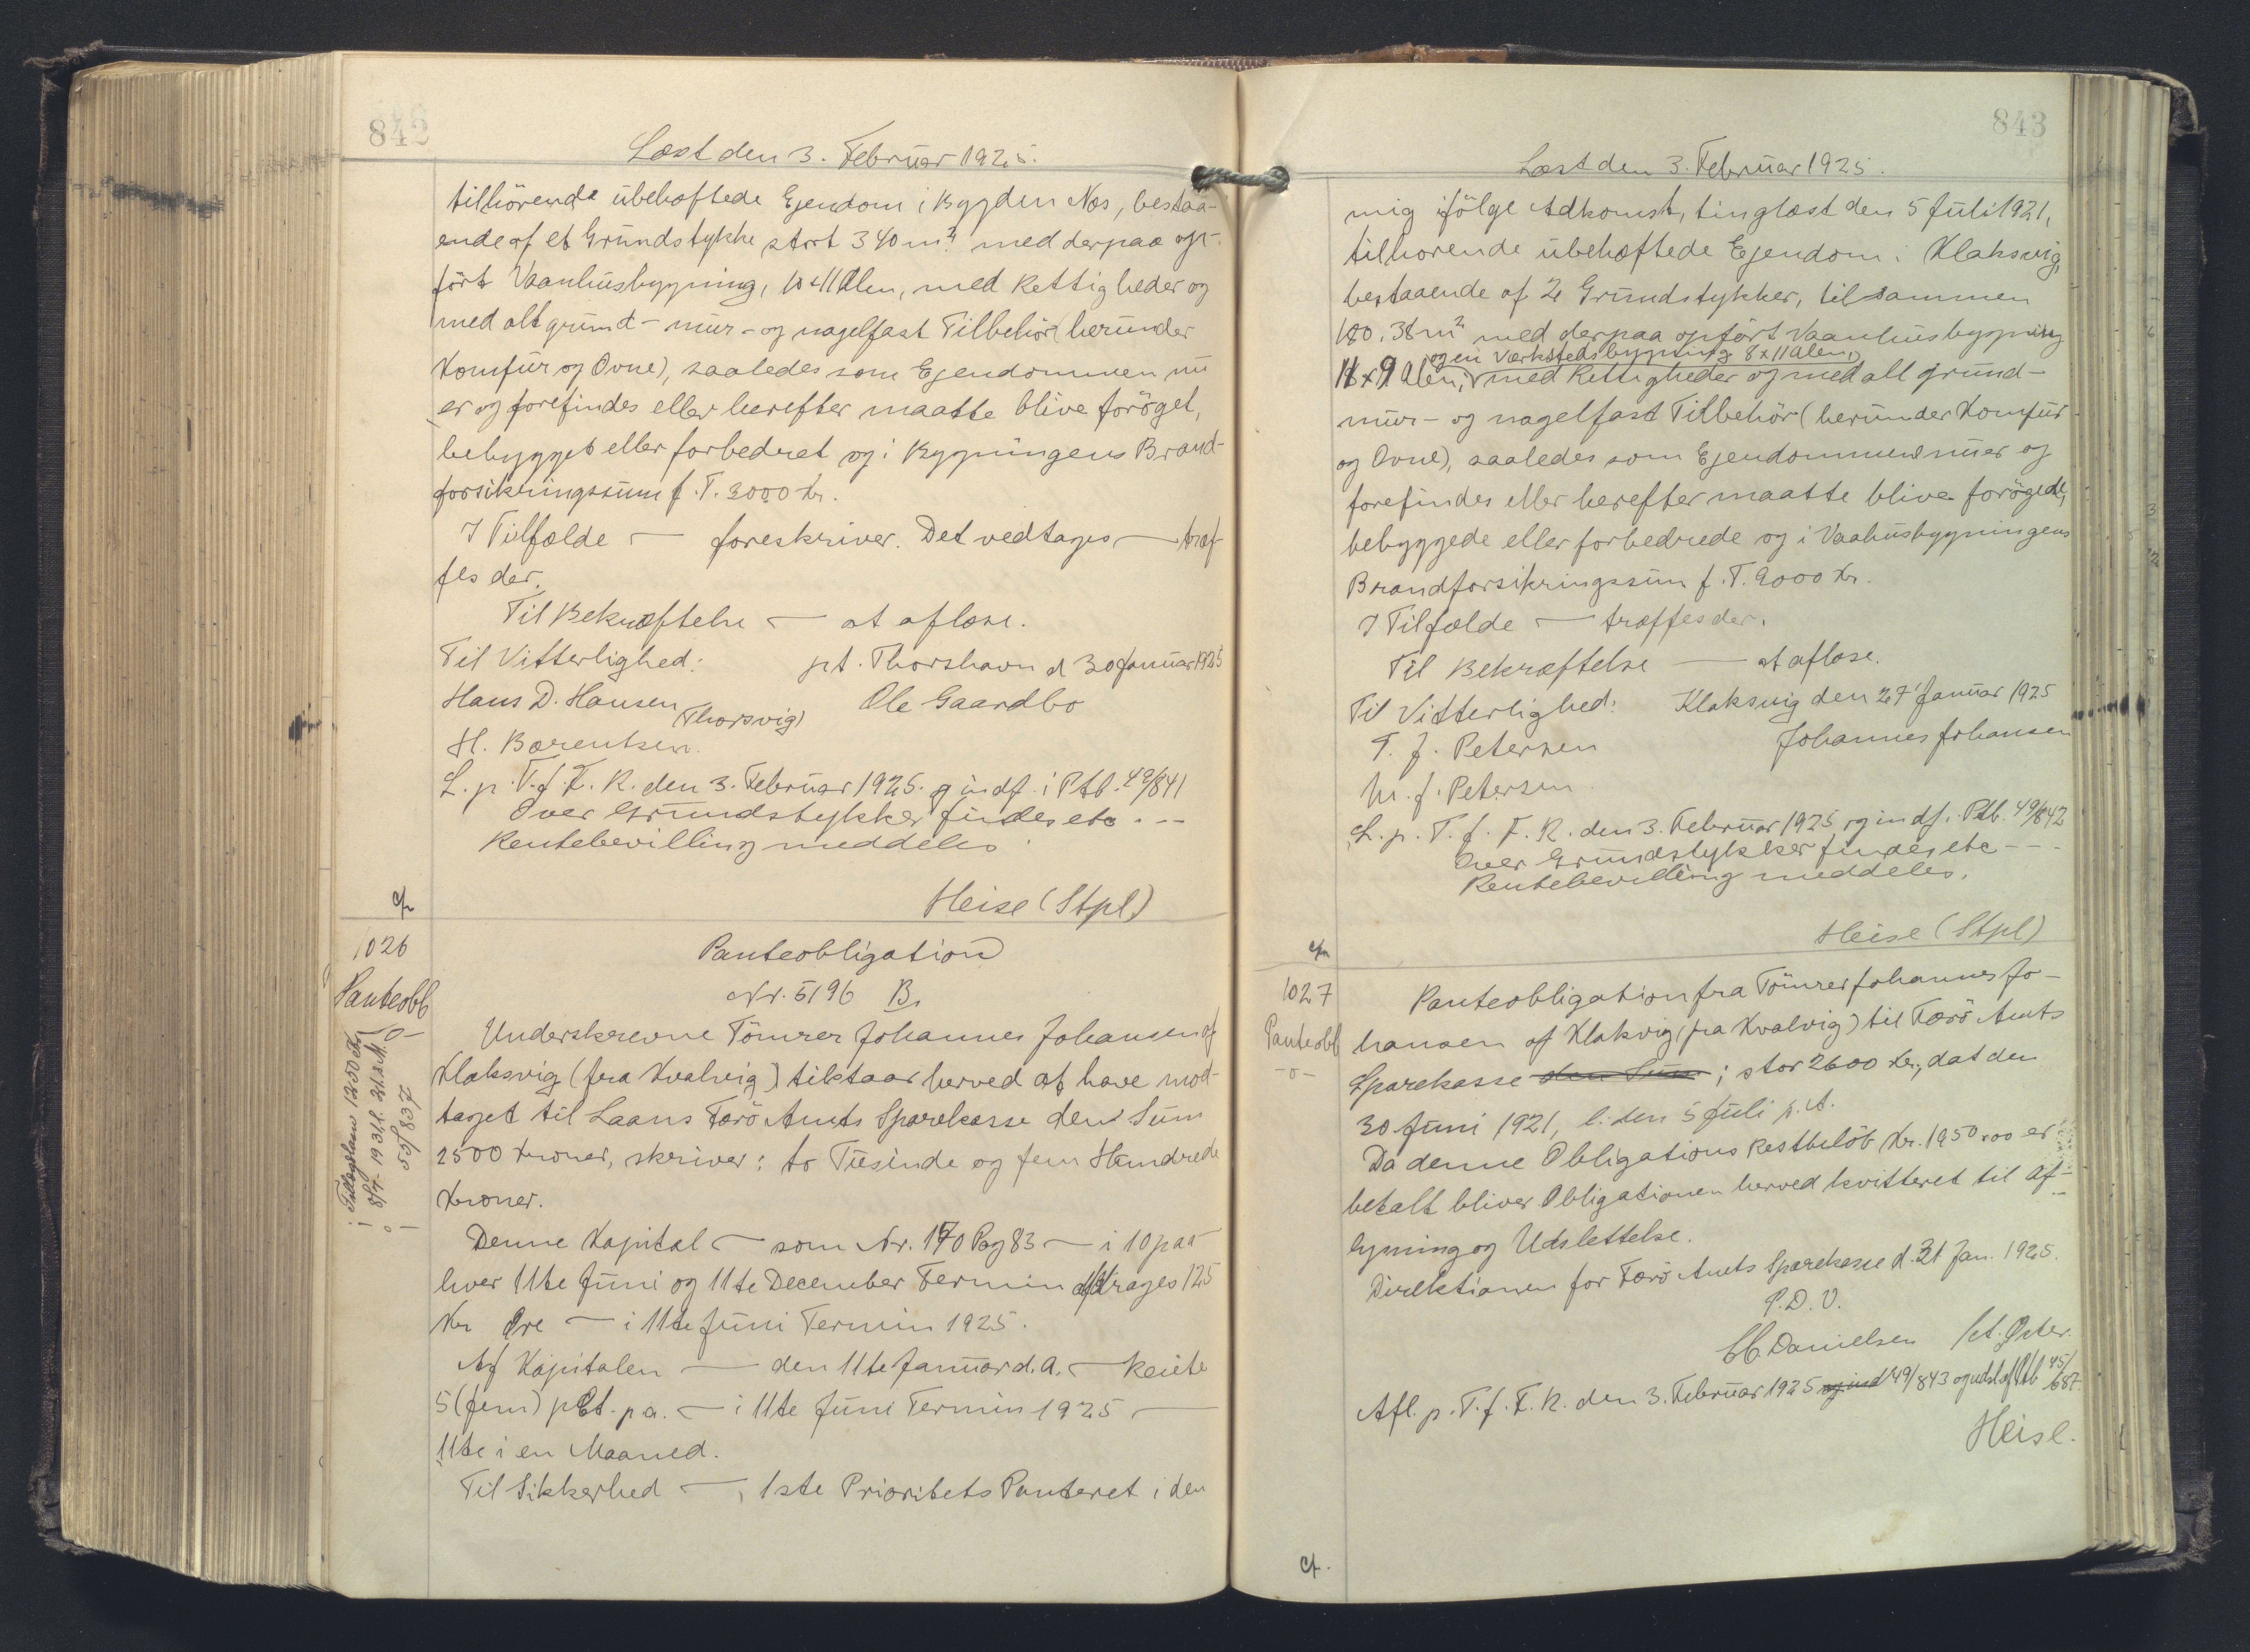 842
Læst den 3. Februar 1925.
tilhörende ubehæftede Ejendom i Bygden Næs, bestaa-
ende af et Grundstykke stort 340 m² med derpaa op-
fört Vaanhusbygning, 10x11 Alen, med Rettigheder og
med alt grund- mur- og nagelfast Tilbehör (herunder
Komfur og Ovne), saaledes som Ejendommen nu
er og forefindes eller herefter maatte blive foröget,
bebygget eller forbedret og i Bygningens Brand-
forsikringssum f. T. 3000 Kr.
I Tilfælde — foreskriver. Det vedtages — træf
fes der.
Til Bekræftelse — at aflæse.
Til Vitterlighed: pt. Thorshavn d 30 Januar 1925
Hans D. Hansen (Thorsvig) Ole Gaardbo
H. Bærentsen.
L. p. T. f. F. R. den 3. Februar 1925. og indf. i Ptb. 49/841
Over Grundstykker findes etc. --
Rentebevilling meddeles.
Heise (Stpl)
cfr
1026
Panteobl
-o-
Tillægslaan 1250 Kr
8/7 1931, l. 21. s. M.
53/837
Panteobligation
Nr. 5196 B.
Underskrevne Tömrer Johannes Johansen af
Klaksvig (fra Kvalvig) tilstaar herved at have mod-
taget til Laans Færö Amts Sparekasse den Sum
2500 Kroner, skriver: to Tusinde og fem Hundrede
Kroner.
Denne Kapital — som Nr. 170 Pag 83 — i 10 paa
hver 11te Juni og 11te December Termin afdrages 125
Kr Øre — i 11te Juni Termin 1925.
Af Kapitalen — den 11te Januar d. A. — Rente
5 (fem) pCt. p a. — i 11te Juni Termin 1925 —
11te i en Maaned.
Til Sikkerhed —, 1ste Prioritets Panteret i den
843
Læst den 3. Februar 1925.
mig ifölge Adkomst, tinglæst den 5 Juli 1921,
tilhorende ubehæftede Ejendom i Klaksvig,
bestaaende af 2 Grundstykker, tilsammen
180.38 m² med derpaa opfört Vaanhusbygning
og en Værkstedsbygning 8x11 Alen,
11x9 Alen, med Rettigheder og med alt grund-
mur- og nagelfast Tilbehör (herunder Komfur
og Ovne), saaledes som Ejendommene nu er og
forefindes eller herefter maatte blive forögede,
bebyggede eller forbedrede og i Vaahusbygningens
Brandforsikringssum f. T. 9000 Kr.
I Tilfælde — træffes der.
Til Bekræftelse — at aflæse.
Til Vitterlighed: Klaksvig den 27' Januar 1925
T. J. Petersen Johannes Johansen
M. J. Petersen
L. p. T. f. F. R. den 3. Februar 1925 og indf. i Ptb. 49/842
Over Grundstykker findes etc ---
Rentebevilling meddeles.
Heise (Stpl)
cfr
1027
Panteobl
-o-
Panteobligation fra Tömrer Johannes Jo-
hansen af Klakvig, (fra Kvalvig) til Færö Amts
Sparekasse den Sum; stor 2600 Kr., dat den
30 Juni 1921, l. den 5 Juli p. A.
Da denne Obligations Restbelöb Kr. 1950,00 er
betalt bliver Obligationen herved kvitteret til Af-
lysning og Udslettelse.
Direktionen for Færö Amts Sparekasse d. 31 Jan. 1925.
P. D. V.
Danielsen / ct. Øster.
Afl. p. T. f. F. R. den 3. Februar 1925 og ind 49/843 og udsl. af Ptb 45/687
Heise.
cf.